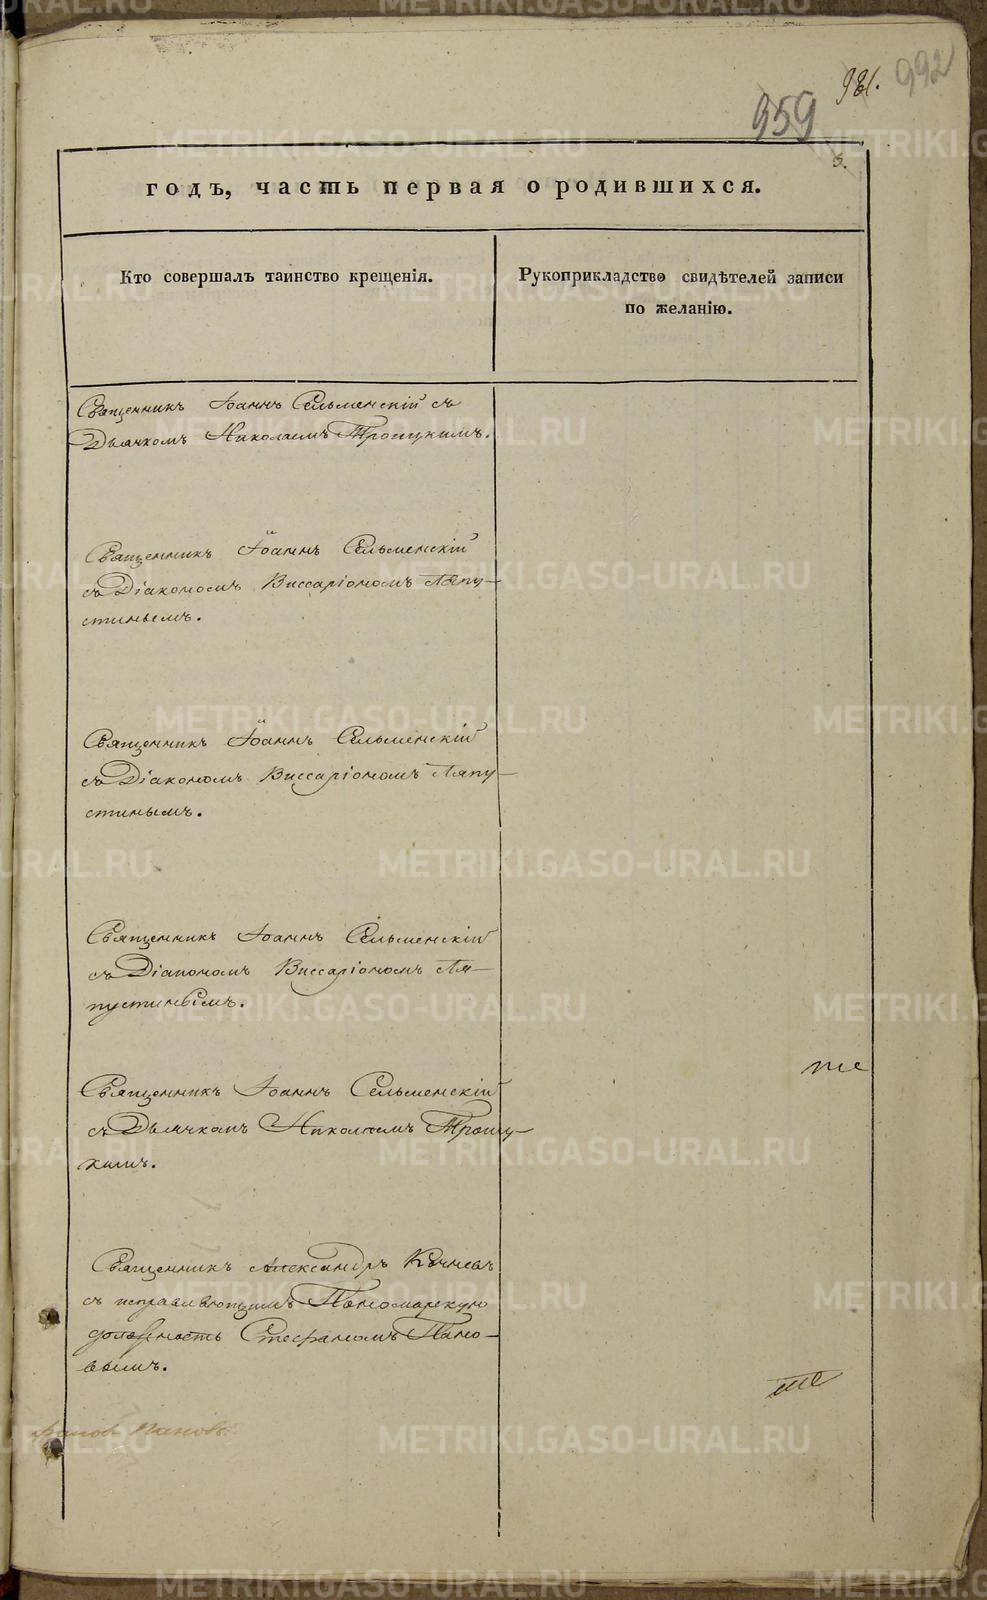 992
981.
959
3.
годъ, часть первая о родившихся.
Кто совершалъ таинство крещенія.
Рукоприкладство свидѣтелей записи
по желанію.
Священникъ Іоаннъ Сельменскій съ
Дьячкомъ Николаемъ Троицкимъ.
Священникъ Іоаннъ Сельменскій
съ Діакономъ Виссаріономъ Ляпу-
стинымъ.
Священникъ Іоаннъ Сельменскій
съ Діакономъ Виссаріономъ Ляпу-
стинымъ.
Священникъ Іоаннъ Сельменскій
съ Діакономъ Виссаріономъ Ля-
пустинымъ.
Священникъ Іоаннъ Сельменскій
съ Дьячкомъ Николаемъ Троиц-
кимъ.
Священникъ Александръ
съ исправляющимъ Пономарскую
должность Стефаномъ Попо-
вымъ.
METRIKI.GASO-URAL.RU